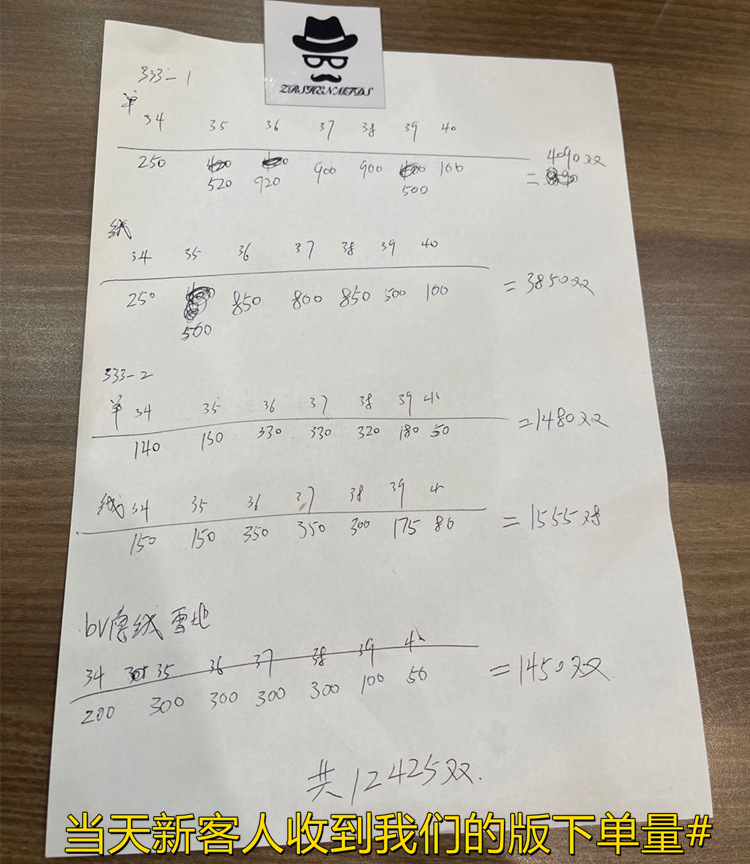 ZRSHENMFDS
333-1
单
34 35 36 37 38 39 40
250 520 920 900 900 500 100 = 4090双
绒
34 35 36 37 38 39 40
250 500 850 800 850 500 100 = 3850双
333-2
单 34 35 36 37 38 39 40
140 150 330 330 320 180 50 =1480双
绒 34 35 36 37 38 39 40
150 150 350 350 300 175 80 = 1555双
bv 绒 雪地
34 35 36 37 38 39 40
200 300 300 300 300 100 50 =1450双
共12425双.
当天新客人收到我们的版下单量#